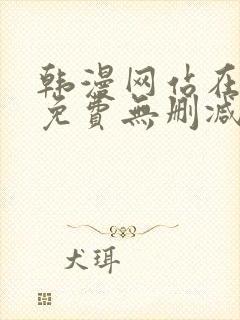 韩漫网站在
免費無删减
犬珥